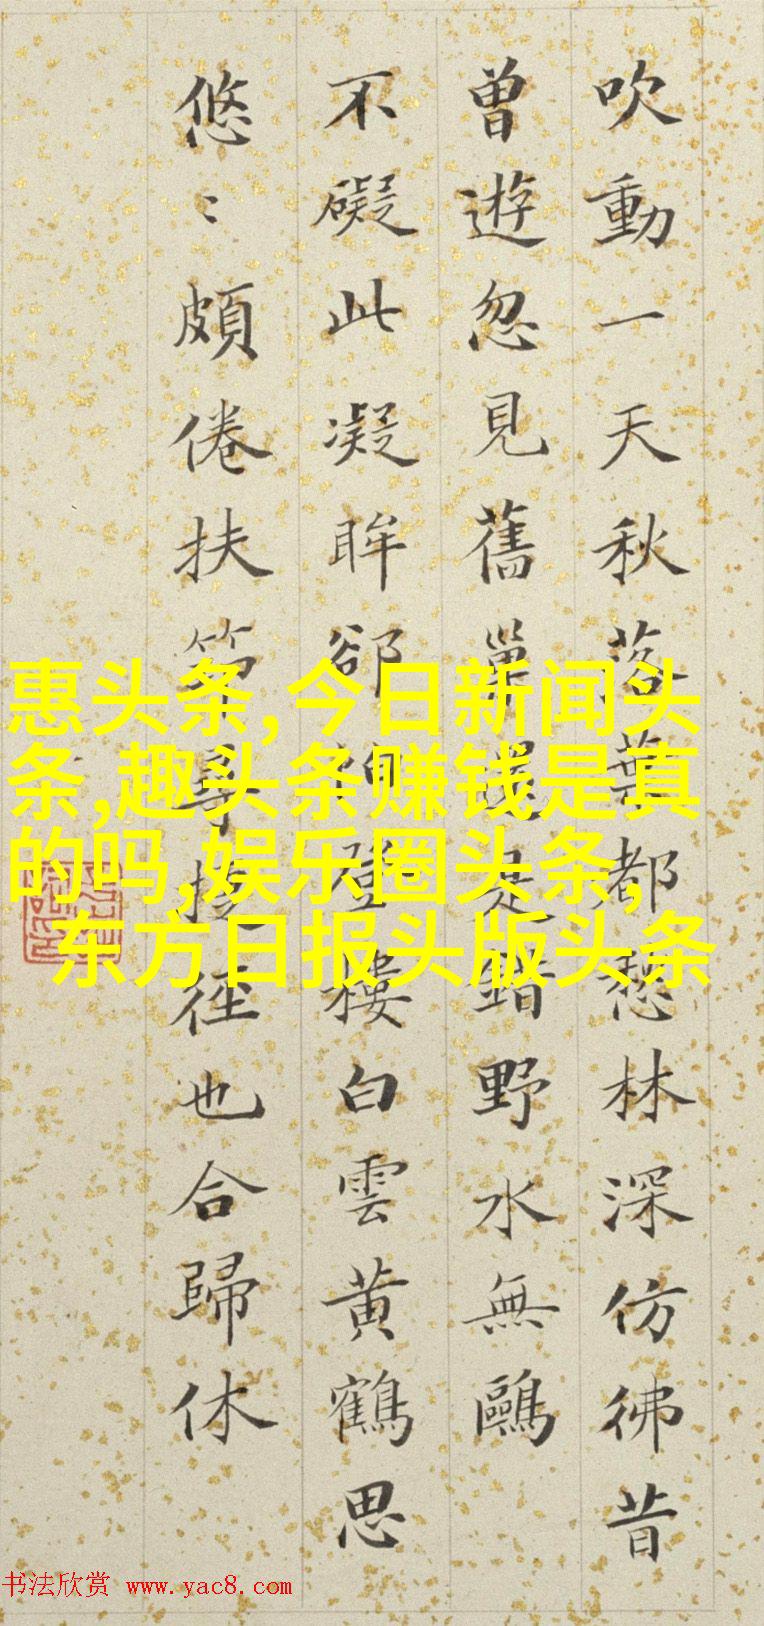 吹動一天秋落葉都愁林深仿彿昔
曾遊忽見舊巢還是錯野水無鷗
不礙此凝眸卻怕登樓白雲黃鶴思
悠〻頗倦扶筇尋捷徑也合歸休
惠头条,今日新闻头
条,趣头条赚钱是真
的吗,娱乐圈头条,
东方日报头版头条
书法欣赏 www.yac8.com